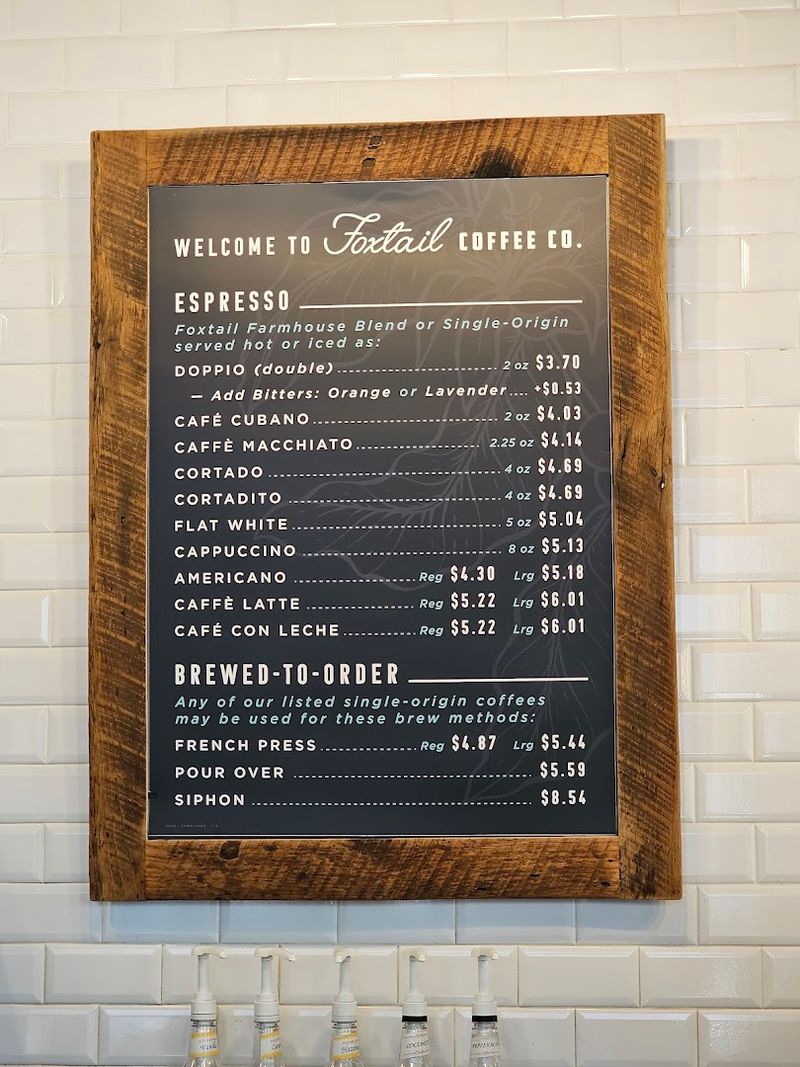 WELCOME TO Foxtail COFFEE CO.
ESPRESSO
Foxtail Farmhouse Blend or Single-Origin
served hot or iced as:
DOPPIO (double) 2 oz $3.70
— Add Bitters: Orange or Lavender.... +$0.53
CAFÉ CUBANO 2 oz $4.03
CAFFÈ MACCHIATO 2.25 oz $4.14
CORTADO 4 oz $4.69
CORTADITO 4 oz $4.69
FLAT WHITE 5 oz $5.04
CAPPUCCINO 8 oz $5.13
AMERICANO Reg $4.30 Lrg $5.18
CAFFÈ LATTE Reg $5.22 Lrg $6.01
CAFÉ CON LECHE Reg $5.22 Lrg $6.01
BREWED-TO-ORDER
Any of our listed single-origin coffees
may be used for these brew methods:
FRENCH PRESS Reg $4.87 Lrg $5.44
POUR OVER $5.59
SIPHON $8.54